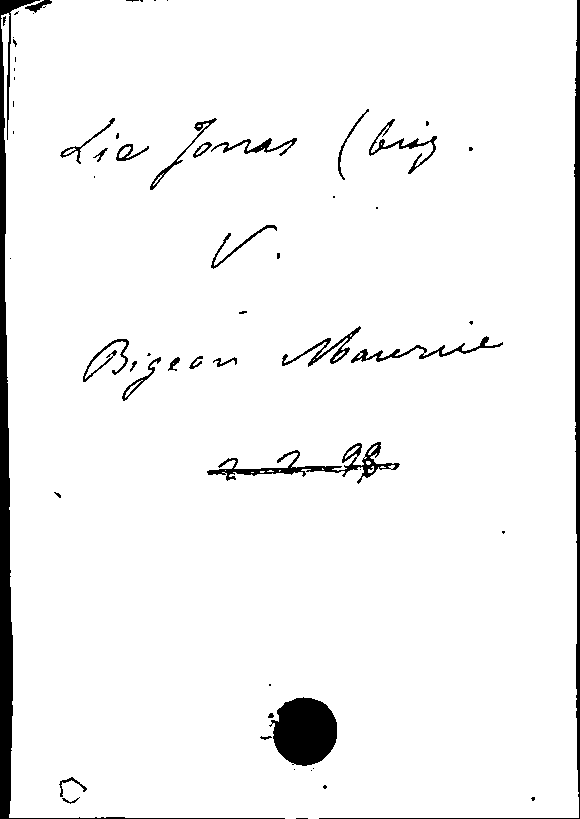 Lie Jonas (biog.
V.
Bigeon Maurice
2. 2. 98